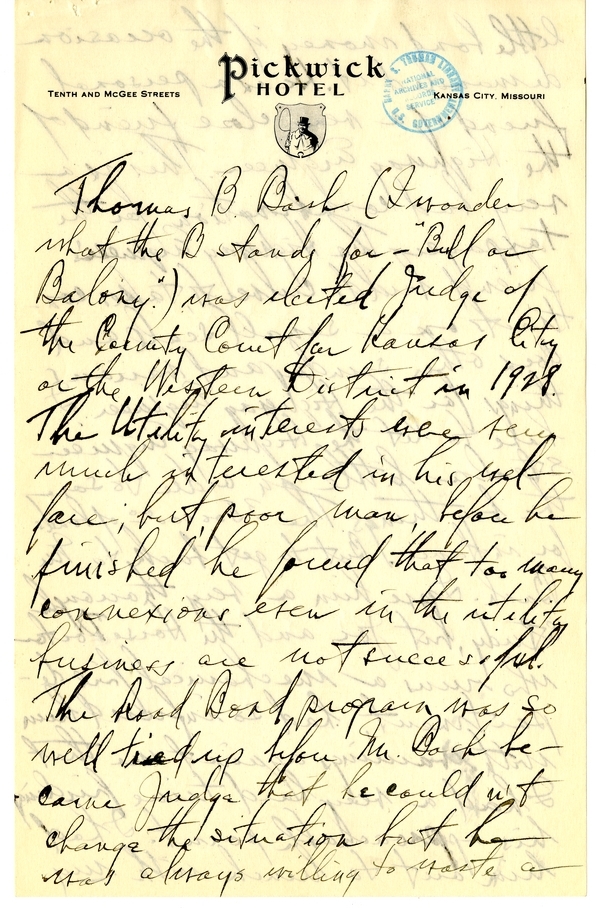 Pickwick
HOTEL
TENTH AND MCGEE STREETS
KANSAS CITY, MISSOURI
HARRY S. TRUMAN LIBRARY
NATIONAL
ARCHIVES AND
SERVICE
U.S. GOVERNMENT
Thomas B. Bash (I wonder
what the B stands for – "Bull or
Balony".) was elected Judge of
the County Court for Kansas City
or the Western District in 1928.
The Utility interests were very
much interested in his wel-
fare; but, poor man, before he
finished he found that too many
connexions even in the utility
business are not successful.
The Road Bond program was so
well tied up before Mr. Bash be-
came Judge that he could not
change the situation but he
was always willing to waste a